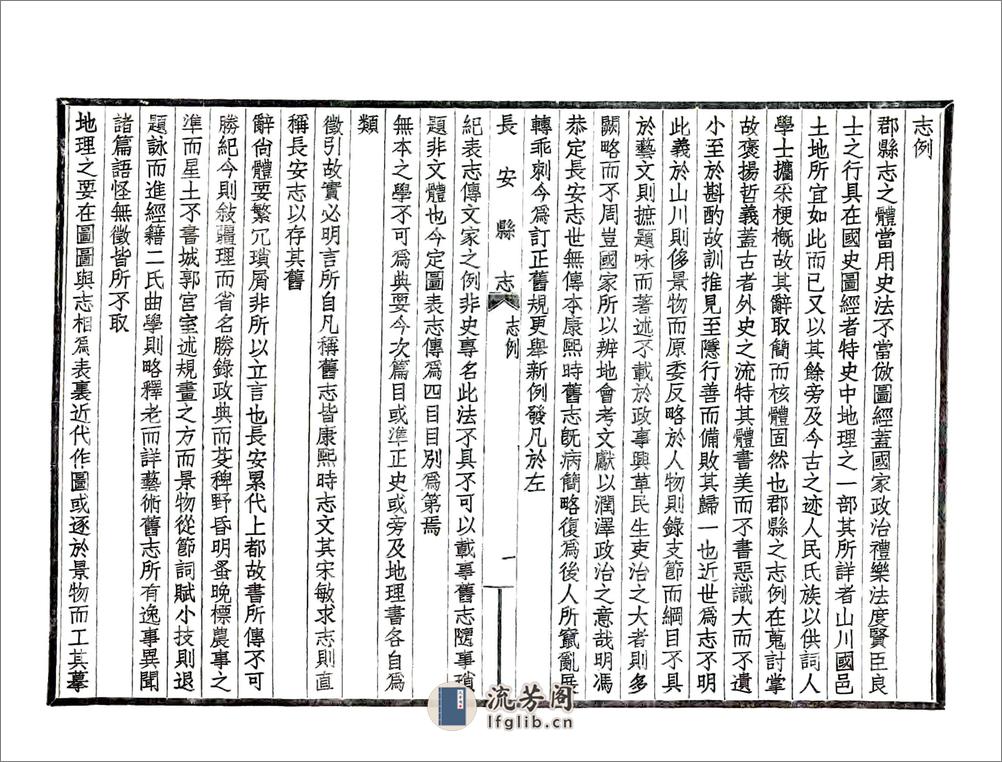 志例
郡縣志之體當用史法不當倣圖經蓋國家政治禮樂法度賢臣良
士之行具在國史圖經者特史中地理之一部其所詳者山川國邑
土地所宜如此而已又以其餘旁及今古之迹人民氏族以供詞人
學士攟采梗概故其辭取簡而核體固然也郡縣之志例在蒐討掌
故褒揚哲義蓋古者外史之流特其體書美而不書惡識大而不遺
小至於斟酌故訓推見至隱行善而備敗其歸一也近世為志不明
此義於山川則侈景物而原委反略於人物則錄支節而綱目不具
於藝文則摭題咏而著述不載於政事興革民生吏治之大者則多
闕略而不周豈國家所以辨地會考文獻以潤澤政治之意哉明馮
恭定長安志世無傳本康熙時舊志旣病簡略復為後人所竄亂展
轉乖剌今為訂正舊規更舉新例發凡於左
長安縣志
志例
一
紀表志傳文家之例非史專名此法不具不可以載事舊志隨事瑣
題非文體也今定圖表志傳為四目目別為第焉
無本之學不可為典要今次篇目或準正史或旁及地理書各自為
類
徵引故實必明言所自凡稱舊志皆康熙時志文其宋敏求志則直
稱長安志以存其舊
辭尙體要繁冗瑣屑非所以立言也長安累代上都故書所傳不可
勝紀今則敍疆理而省名勝錄政典而芟稗野昏明蚤晚標農事之
準而星土不書城郭宮室述規畫之方而景物從節詞賦小技則退
題詠而進經籍二氏曲學則略釋老而詳藝術舊志所有逸事異聞
諸篇語怪無徵皆所不取
地理之要在圖圖與志相為表裏近代作圖或逐於景物而工其摹
流芳阁
lfglib.cn